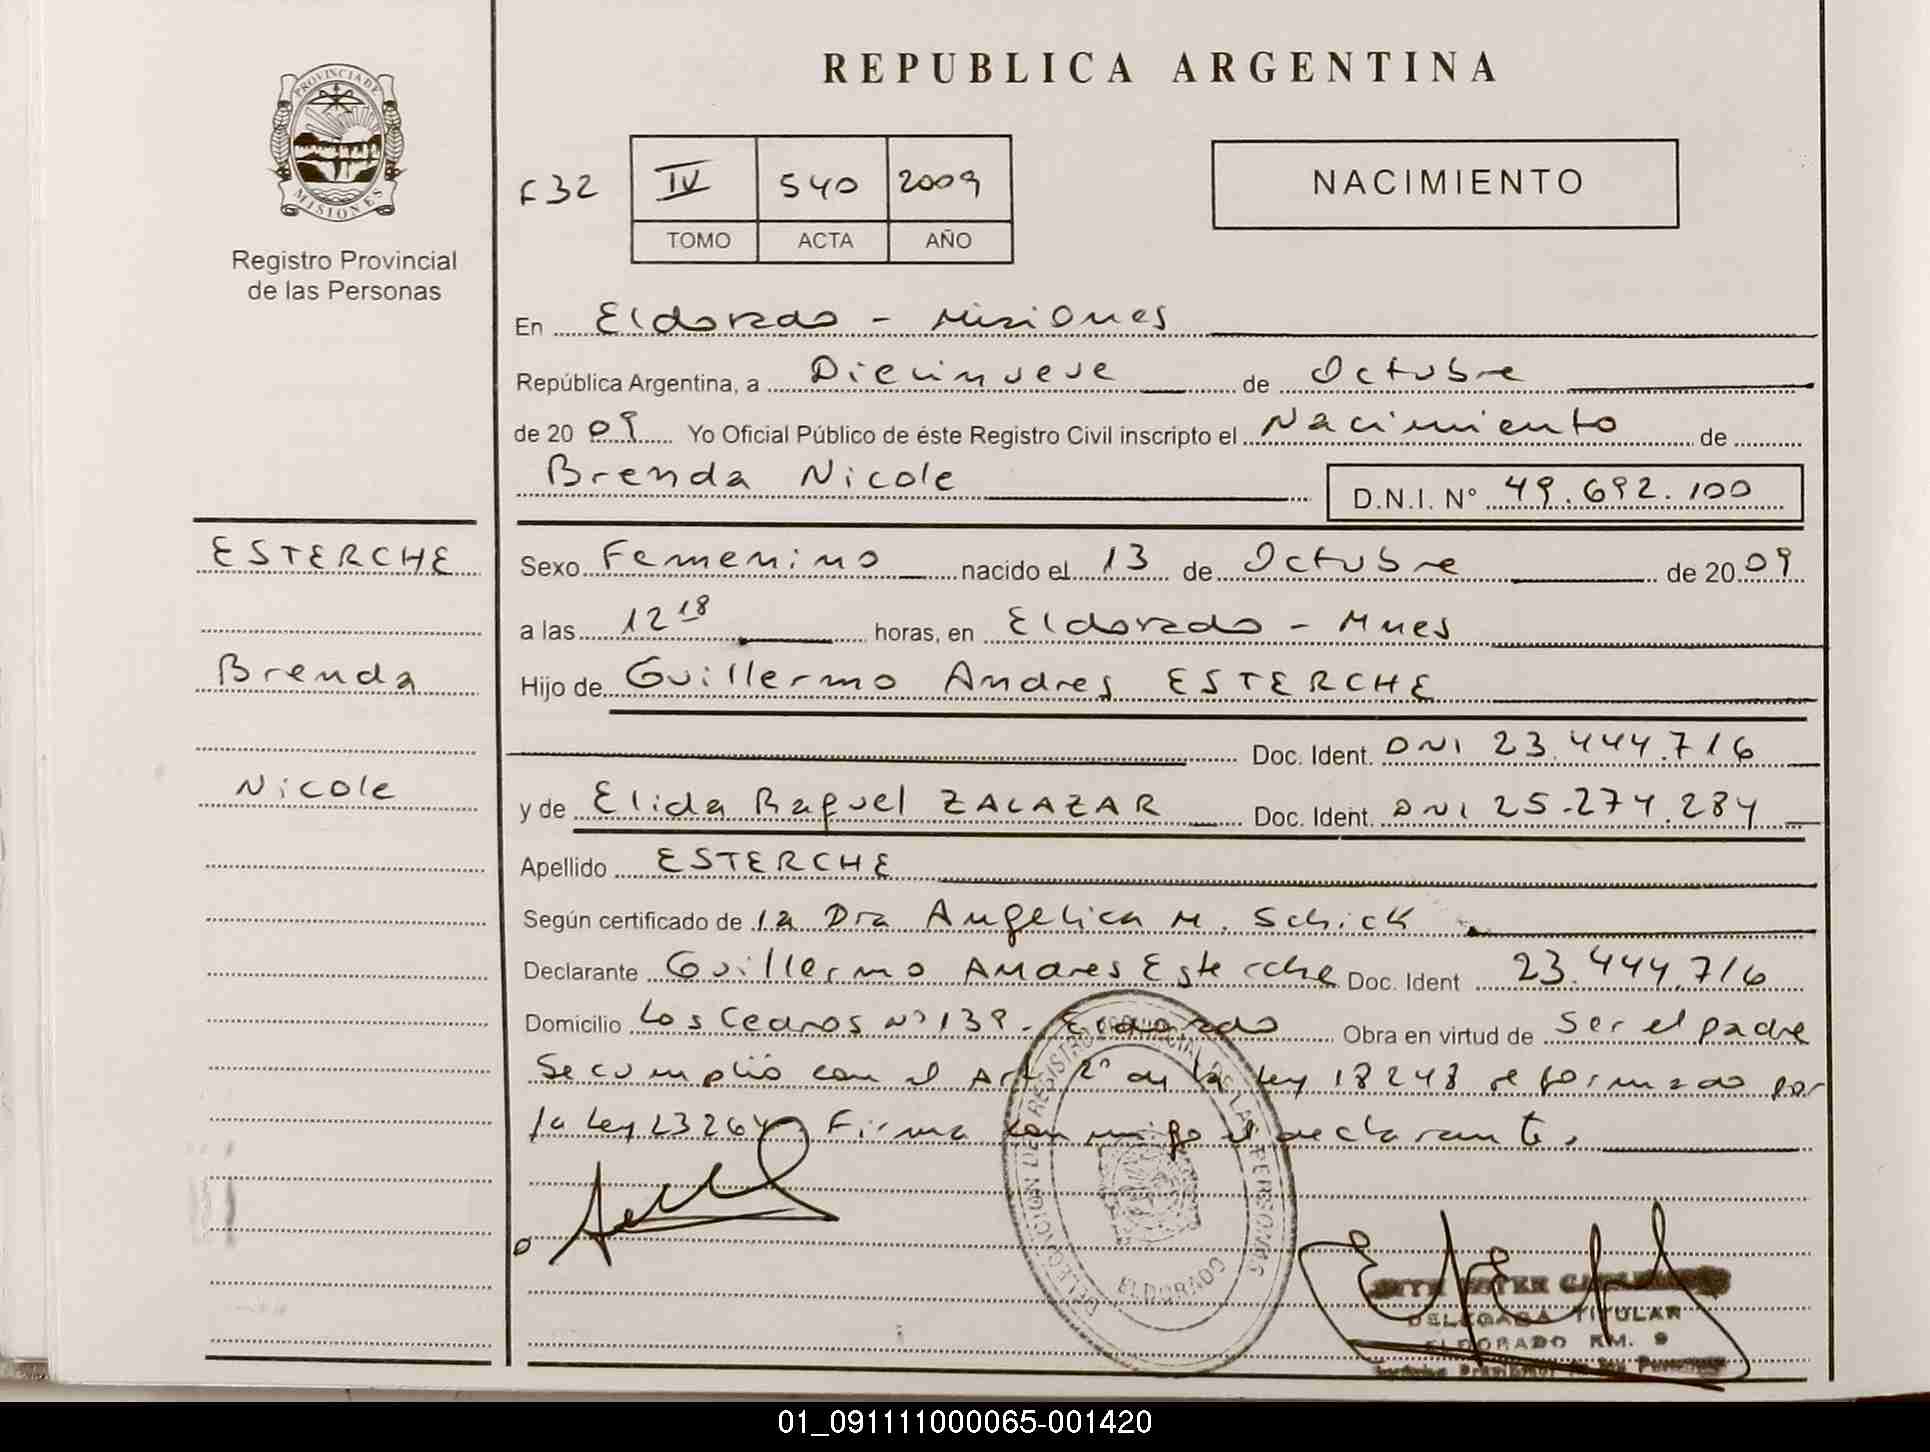 REPUBLICA ARGENTINA
PROVINCIA DE
MISIONES
Registro Provincial
de las Personas
F32 IV 540 2009
TOMO ACTA AÑO
NACIMIENTO
En Eldorado - Misiones
República Argentina, a Diecinueve de Octubre
de 20 09 Yo Oficial Público de éste Registro Civil inscripto el Nacimiento de
Brenda Nicole D.N.I. N° 49.692.100
ESTERCHE
Brenda
Nicole
Sexo Femenino nacido el 13 de Octubre de 20 09
a las 12 18 horas, en Eldorado - Mnes
Hijo de Guillermo Andres ESTERCHE
Doc. Ident. DNI 23.444.716
y de Elida Raquel ZALAZAR Doc. Ident. DNI 25.274.284
Apellido ESTERCHE
Según certificado de la Dra Angelica M. Schick
Declarante Guillermo Andres Esterche Doc. Ident 23.444.716
Domicilio Los Cedros N° 139 - Eldorado Obra en virtud de Ser el padre
Se cumplió con el Art 2° de la Ley 18248 reformado por
la Ley 23264. Firma conmigo el declarante.
DELEGACION DEL REGISTRO PROVINCIAL DE LAS PERSONAS
ELDORADO
DELEGADA TITULAR
ELDORADO KM. 9
01_091111000065-001420